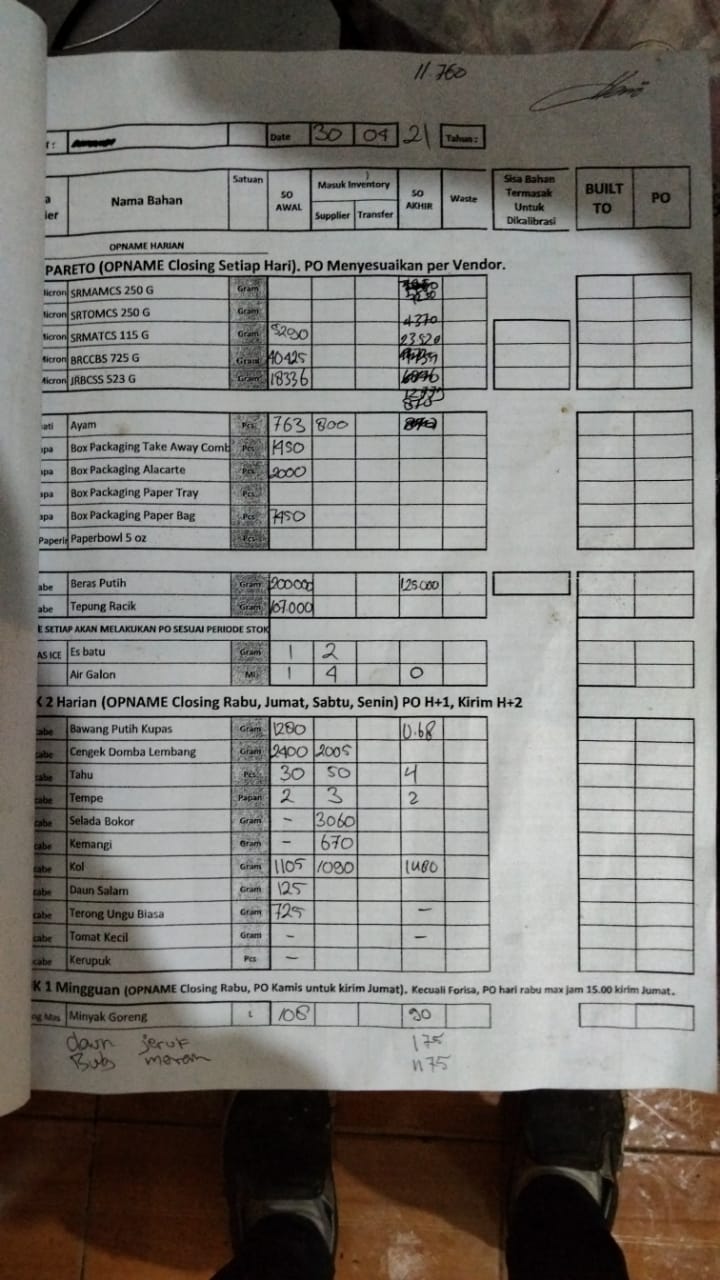 11.760
Date 30 04 21 Tahun :
Nama Bahan Satuan SO AWAL Masuk Inventory Supplier Transfer SO AKHIR Waste Sisa Bahan Termasak Untuk Dikalibrasi BUILT TO PO
OPNAME HARIAN
PARETO (OPNAME Closing Setiap Hari). PO Menyesuaikan per Vendor.
Micron SRMAMCS 250 G Gram
Micron SRTOMCS 250 G Gram 4370
Micron SRMATCS 115 G Gram 5290 23520
Micron BRCCBS 725 G Gram 40425
Micron JRBCSS 523 G Gram 18336
870
Ayam Pcs 763 800
Box Packaging Take Away Comb Pcs 1450
Box Packaging Alacarte Pcs 2000
Box Packaging Paper Tray Pcs
Box Packaging Paper Bag Pcs 7450
Paperbowl 5 oz Pcs
Beras Putih Gram 200000 125000
Tepung Racik Gram 107.000
E SETIAP AKAN MELAKUKAN PO SESUAI PERIODE STOK
AS ICE Es batu Gram 1 2
Air Galon Ml 1 4 0
K 2 Harian (OPNAME Closing Rabu, Jumat, Sabtu, Senin) PO H+1, Kirim H+2
cabe Bawang Putih Kupas Gram 1280 0.68
cabe Cengek Domba Lembang Gram 2400 2005
cabe Tahu Pcs 30 50 4
cabe Tempe Papan 2 3 2
cabe Selada Bokor Gram - 3060
cabe Kemangi Gram - 670
cabe Kol Gram 1105 1090 1480
cabe Daun Salam Gram 125
cabe Terong Ungu Biasa Gram 725 -
cabe Tomat Kecil Gram - -
cabe Kerupuk Pcs -
K 1 Mingguan (OPNAME Closing Rabu, PO Kamis untuk kirim Jumat). Kecuali Forisa, PO hari rabu max jam 15.00 kirim Jumat.
ng Mas Minyak Goreng L 108 90
daun jeruk 175
Bub merah 1175